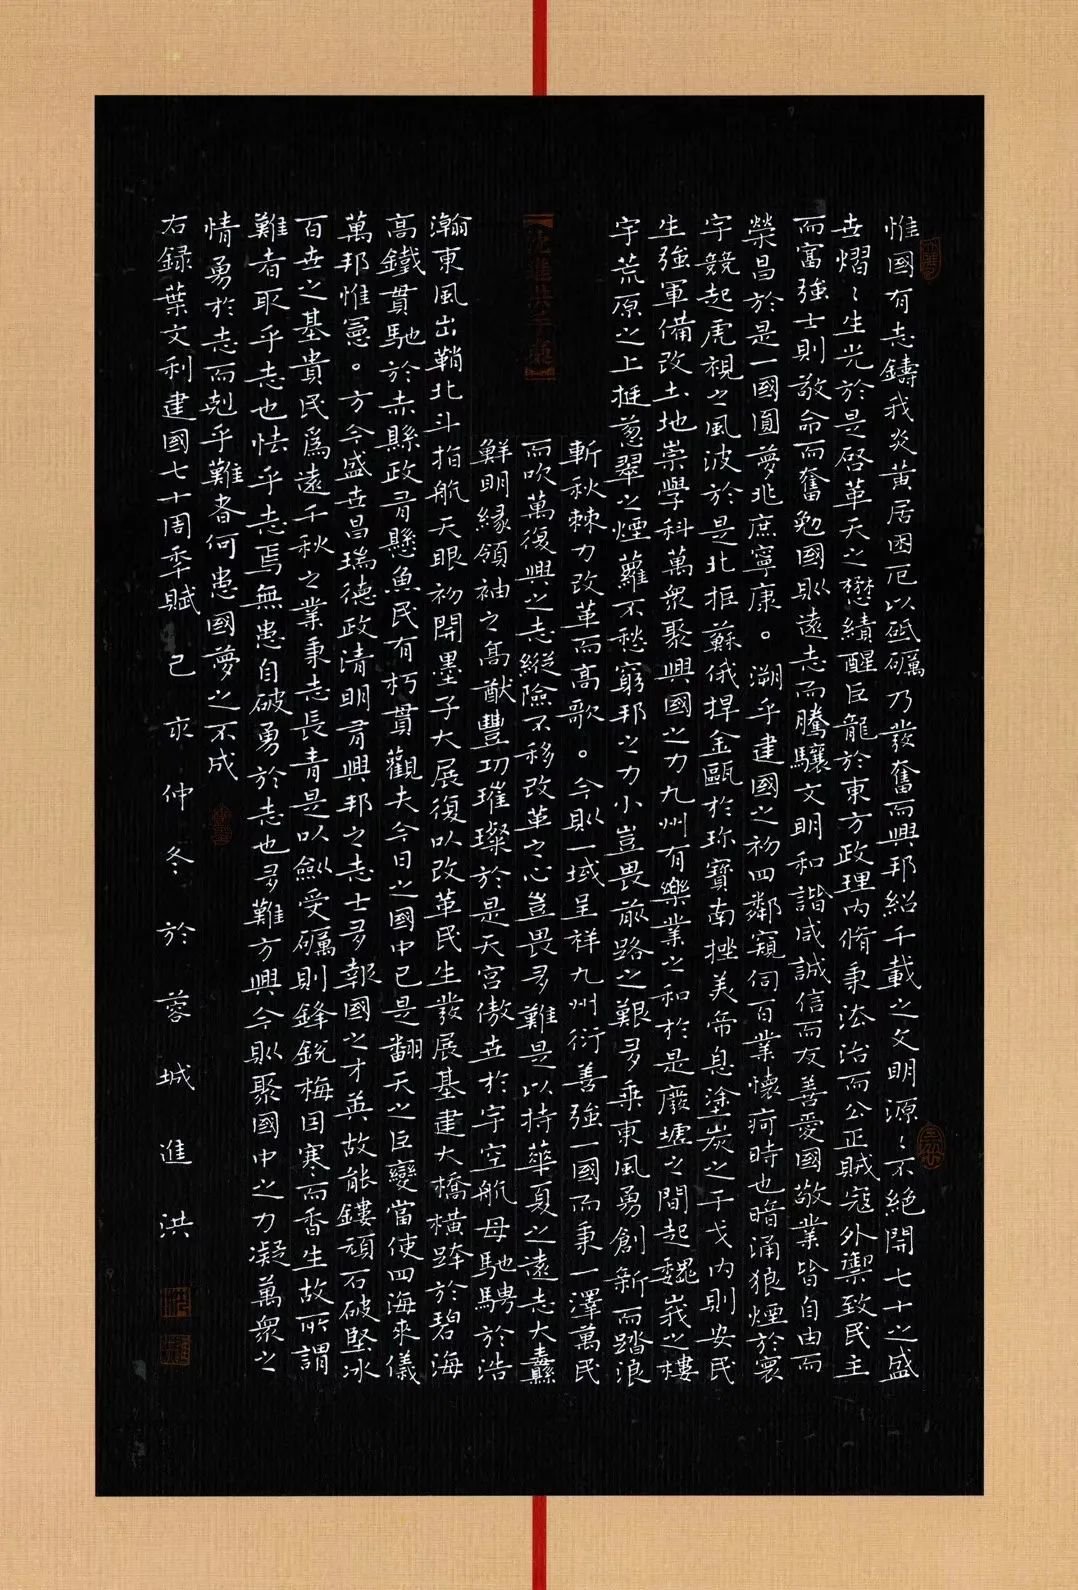 惟國有志鑄我炎黃居困厄以砥礪乃發奮而興邦紹千載之文明源〻不絕開七十之盛
世熠〻生光於是啓革天之懋績醒巨龍於東方政理內脩秉法治而公正賊寇外禦致民主
而富強士則敬命而奮勉國則遠志而騰驤文明和諧咸誠信而友善愛國敬業皆自由而
榮昌於是一國圓夢兆庶寧康。溯乎建國之初四鄰窺伺百業懷疴時也暗涌狼煙於寰
宇競起虎視之風波於是北拒蘇俄捍金甌於珍寶南挫美帝息塗炭之干戈內則安民
生強軍備改土地崇學科萬衆聚興國之力九州有樂業之和於是廢墟之間起巍峩之樓
宇荒原之上挺蔥翠之煙蘿不愁窮邦之力小豈畏前路之艱多乘東風勇創新而踏浪
斬秋棘力改革而高歌。今則一域呈祥九州衍善強一國而秉一澤萬民
而吹萬復興之志縱險不移改革之心豈畏多難是以持華夏之遠志大纛
鮮明緣領袖之高猷豐功璀璨於是天宮傲世於宇空航母馳騁於浩
瀚東風出鞘北斗指航天眼初開墨子大展復以改革民生發展基建大橋橫跨於碧海
高鐵貫馳於赤縣政有懸魚民有朽貫觀夫今日之國中已是翻天之巨變當使四海來儀
萬邦惟憲。方今盛世昌瑞德政清明有興邦之志士多報國之才英故能鏤頑石破堅冰
百世之基貴民爲遠千秋之業秉志長青是以劍受礪則鋒銳梅因寒而香生故所謂
難者取乎志也怯乎志焉無患自破勇於志也多難方興今則聚國中之力凝萬衆之
情勇於志而剋乎難者何患國夢之不成
右録葉文利建國七十周年賦 己亥仲冬於蓉城進洪